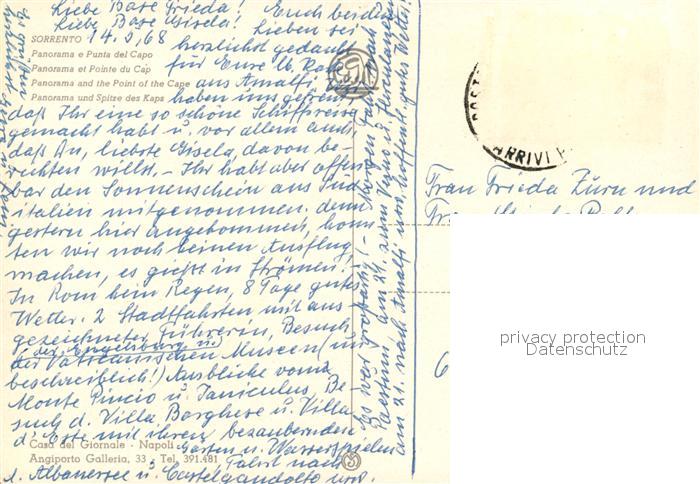 Liebe Base Frieda!
Liebe Base Gisela!
Euch beiden
Lieben sei
14.5.68 herzlichst gedankt
für Eure lb. Karte
aus Amalfi, wir
haben uns gefreut,
daß Ihr eine so schöne Schiffsreise
gemacht habt u. vor allem auch,
daß Du, liebste Gisela, davon be-
richten willst, - Ihr habt aber offen-
bar den Sonnenschein aus Süd
italien mitgenommen, denn
gestern hier angekommen, konn
ten wir noch keinen Ausflug
machen, es gießt in Strömen! -
In Rom kein Regen, 8 Tage gutes
Wetter. 2 Stadtfahrten mit aus
gezeichneter Führerin, Besuch
der Engelsburg u.
der Vatikanischen Museen (un
beschreiblich!) Ausblicke vom
Monte Pincio u. Janiculus, Be-
such d. Villa Borghese u. Villa
d'Este mit ihren bezaubernden
Gärten u. Wasserspielen
Fahrt nach
d. Albanersee u. Castelgandolfo usw.
Es war großartig! - Morgen Fahrt nach
Paestum, am 21. zum Vesuv u. Herculaneum
am 21. nach Amalfi usw, hoffentl. gutes Wetter!
Es grüßen
SORRENTO
Panorama e Punta del Capo
Panorama et Pointe du Cap
Panorama and the Point of the Cape
Panorama und Spitze des Kaps
Casa del Giornale - Napoli
Angiporto Galleria, 33 - Tel. 391.481
ARRIVI
Frau Frieda Zürn und
privacy protection
Datenschutz